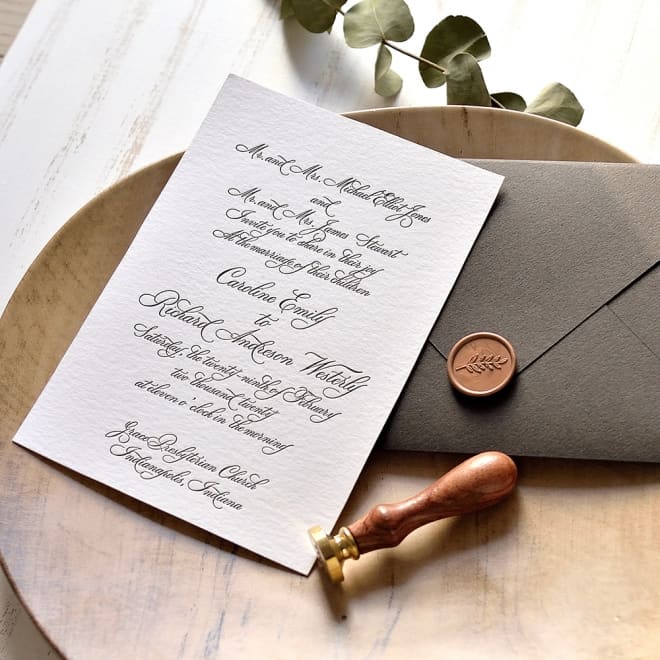 Mr. and Mrs. Michael Elliot Jones
and
Mr. and Mrs. James Stewart
Invite you to share in their joy
At the marriage of their children
Caroline Emily
to
Richard Andreson Westerly
Saturday, the twenty ninth of February
two thousand twenty
at eleven o'clock in the morning
Grace Presbyterian Church
Indianapolis, Indiana